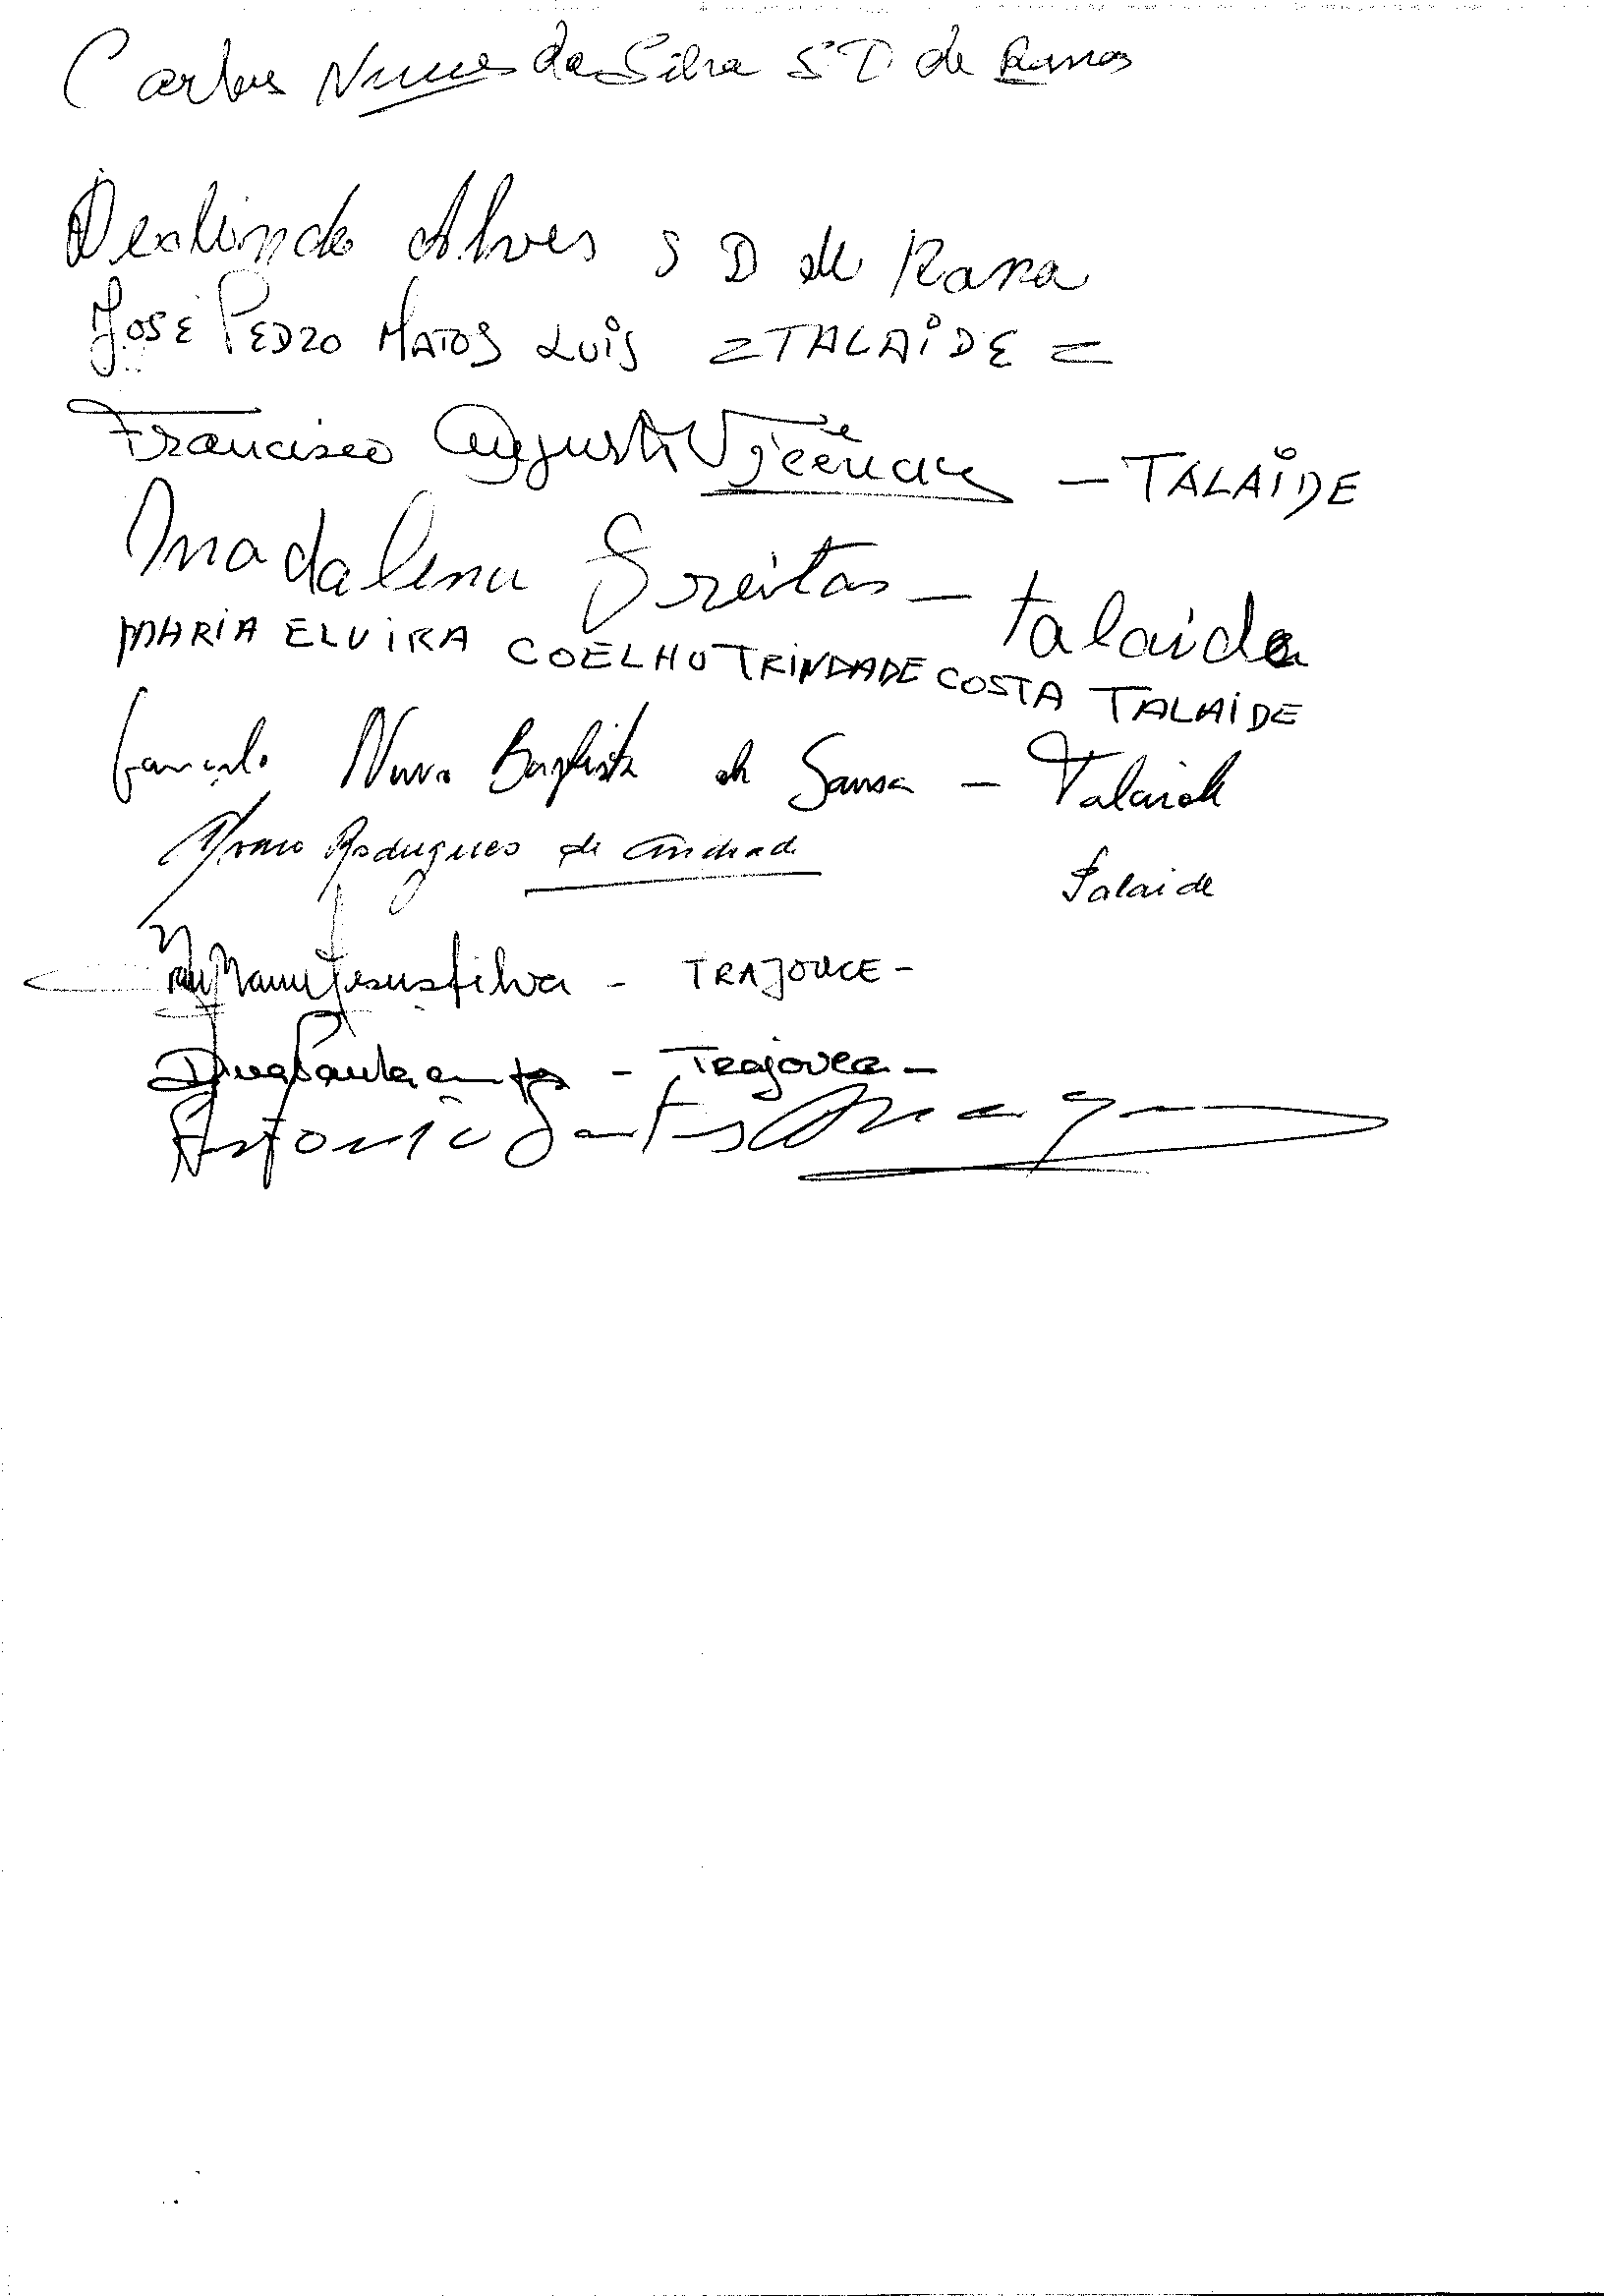 Carlos Nunes da Silva S D de Rana
Deolinda Alves S D de Rana
JOSÉ PEDRO MATOS LUIS = TALAÍDE =
Francisco Augusto Vicente - TALAÍDE
Madalena Freitas - talaide
MARIA ELVIRA COELHO TRINDADE COSTA TALAIDE
Gonçalo Nuno Baptista de Sousa - Talaide
Alvaro Rodrigues de Andrade Talaide
Jesus Silva - TRAJOUCE -
Paula - Trajouce -
António Santos